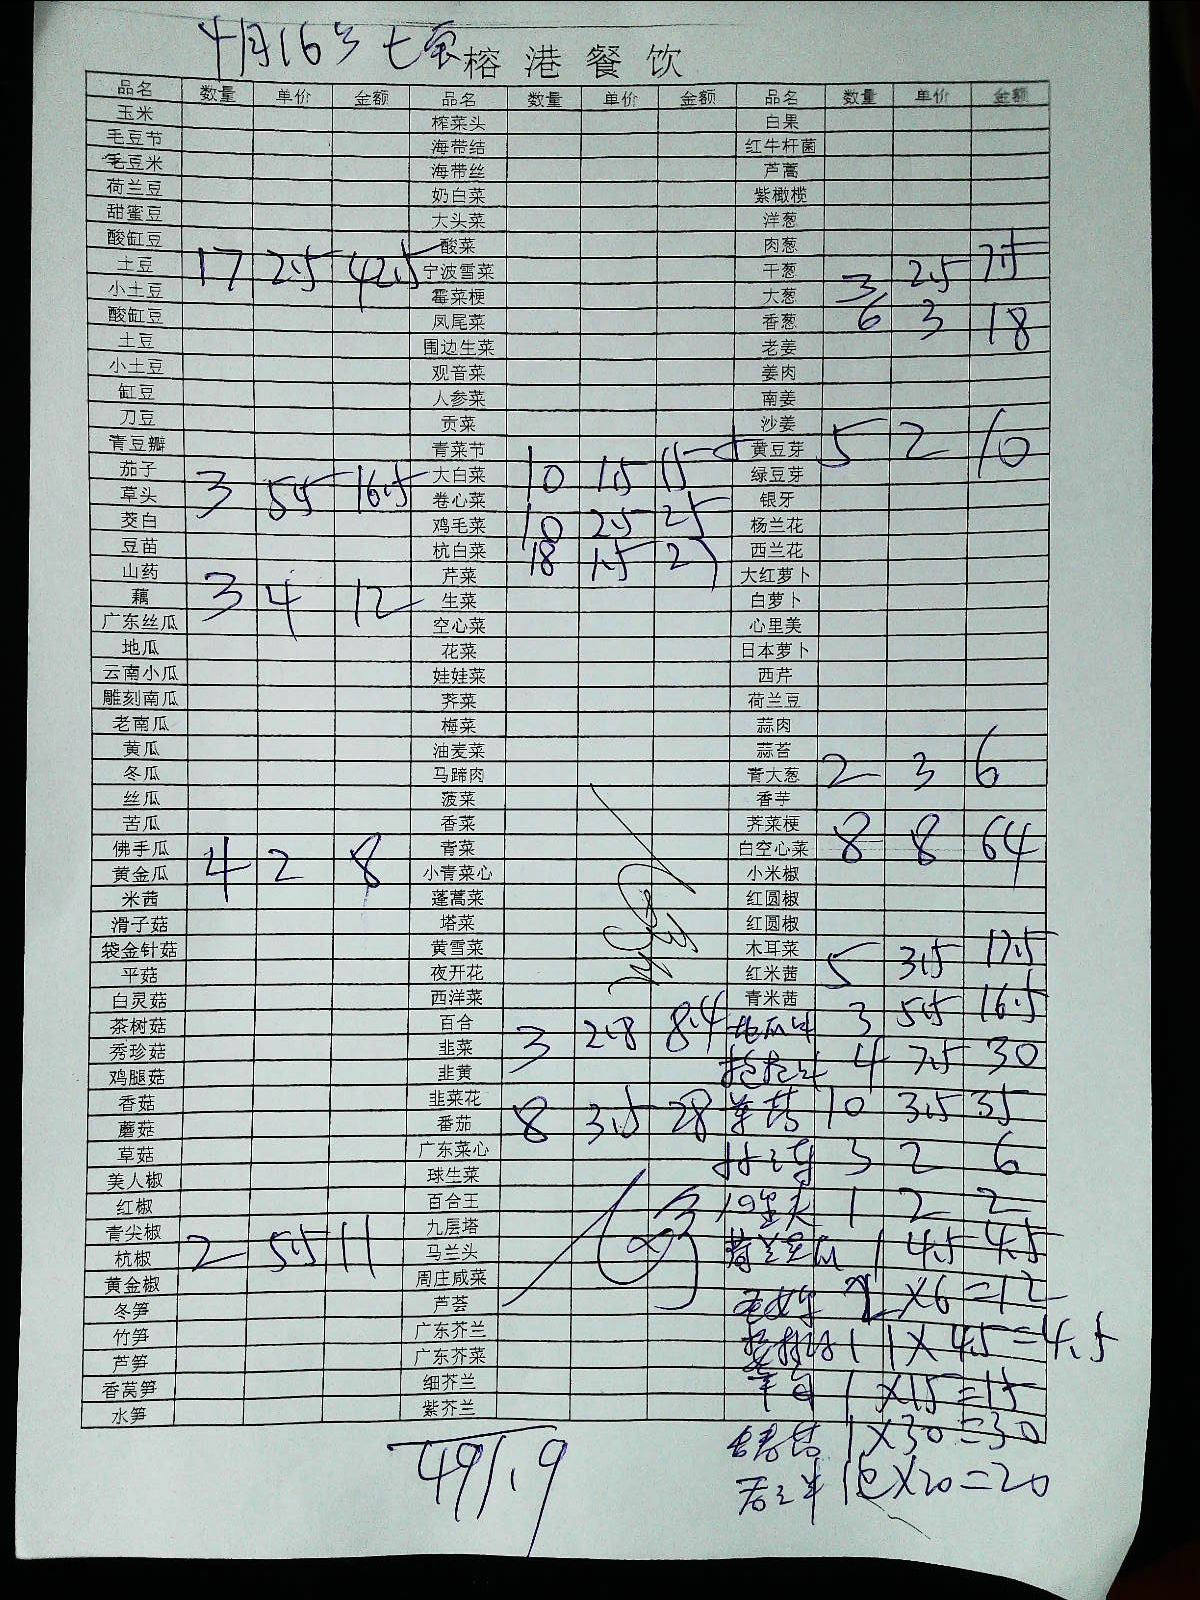 4月16号 七宝 榕港餐饮
品名 数量 单价 金额 品名 数量 单价 金额 品名 数量 单价 金额
玉米 榨菜头 白果
毛豆节 海带结 红牛杆菌
毛豆米 海带丝 芦蒿
荷兰豆 奶白菜 紫橄榄
甜蜜豆 大头菜 洋葱
酸缸豆 酸菜 肉葱
土豆 17 2.5 42.5 宁波雪菜 干葱 3 2.5 7.5
小土豆 霉菜梗 大葱
酸缸豆 凤尾菜 香葱 6 3 18
土豆 围边生菜 老姜
小土豆 观音菜 姜肉
缸豆 人参菜 南姜
刀豆 贡菜 沙姜
青豆瓣 青菜节 黄豆芽 5 2 10
茄子 3 5.5 16.5 大白菜 10 1.5 15 绿豆芽
草头 卷心菜 银牙
茭白 鸡毛菜 10 2.5 25 杨兰花
豆苗 杭白菜 18 1.5 27 西兰花
山药 芹菜 大红萝卜
藕 3 4 12 生菜 白萝卜
广东丝瓜 空心菜 心里美
地瓜 花菜 日本萝卜
云南小瓜 娃娃菜 西芹
雕刻南瓜 荠菜 荷兰豆
老南瓜 梅菜 蒜肉
黄瓜 油麦菜 蒜苔
冬瓜 马蹄肉 青大葱 2 3 6
丝瓜 菠菜 香芋
苦瓜 香菜 荠菜梗
佛手瓜 青菜 白空心菜 8 8 64
黄金瓜 4 2 8 小青菜心 小米椒
米茜 蓬蒿菜 红圆椒
滑子菇 塔菜 红圆椒
袋金针菇 黄雪菜 木耳菜
平菇 夜开花 红米茜 5 3.5 17.5
白灵菇 西洋菜 青米茜
茶树菇 百合 3 5.5 16.5
秀珍菇 韭菜 3 2.8 8.4 4 7.5 30
鸡腿菇 韭黄
香菇 韭菜花 10 3.5 35
蘑菇 番茄 8 3.5 28
草菇 广东菜心 3 2 6
美人椒 球生菜
红椒 百合王 1 2 2
青尖椒 九层塔
杭椒 2 5.5 11 马兰头 1 4.5 4.5
黄金椒 周庄咸菜
冬笋 芦荟 2×6=12
竹笋 广东芥兰 1 1×4.5=4.5
芦笋 广东芥菜
香莴笋 细芥兰 1×15=15
水笋 紫芥兰
1×30=30
491.9
1包×20=20